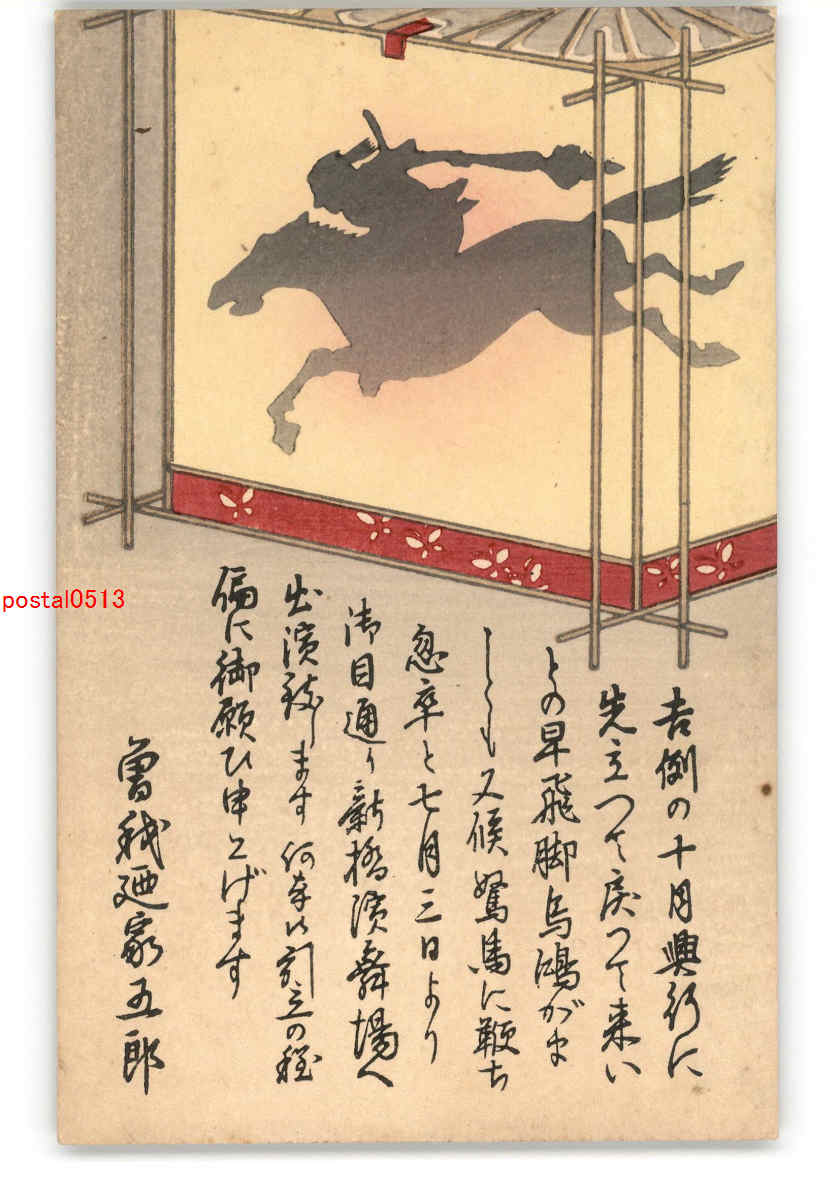 吉例の十月興行に
先立つて戻つて来い
との早飛脚烏鴻がま
しくも又候駑馬に鞭ち
怱卒と七月三日より
御目通り新橋演舞場へ
出演致します何卒御引立の程
偏に御願ひ申上げます
曽我廼家五郎
postal0513